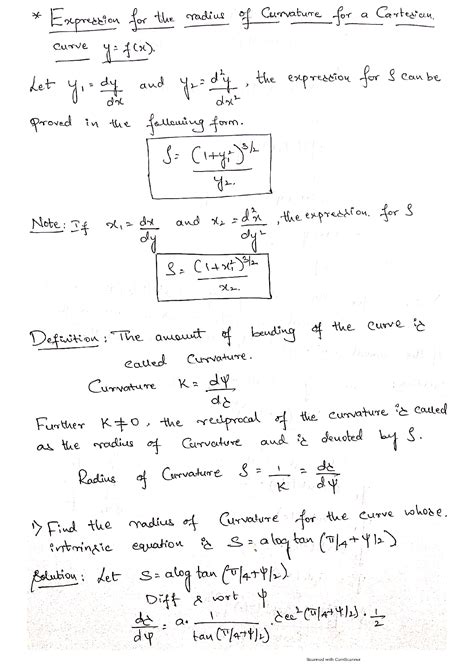 * Expression for the radius of Curvature for a Cartesian
curve y = f(x).
Let y₁ = dy/dx and y₂ = d²y/dx², the expression for ρ can be
proved in the following form.
ρ = (1+y₁²)^3/2 / y₂.
Note: If x₁ = dx/dy and x₂ = d²x/dy², the expression. for ρ
ρ = (1+x₁²)^3/2 / x₂.
Definition: The amount of bending of the curve is
called Curvature.
Curvature K = dψ/ds
Further K ≠ 0, the reciprocal of the curvature is called
as the radius of Curvature and is denoted by ρ.
Radius of Curvature ρ = 1/K = ds/dψ
1) Find the radius of Curvature for the curve whose.
intrinsic equation is S = a log tan (π/4 + ψ/2)
Solution: Let S = a log tan (π/4 + ψ/2)
Diff s wrt ψ
ds/dψ = a. 1/tan (π/4 + ψ/2) . sec² (π/4 + ψ/2) . 1/2
Scanned with CamScanner